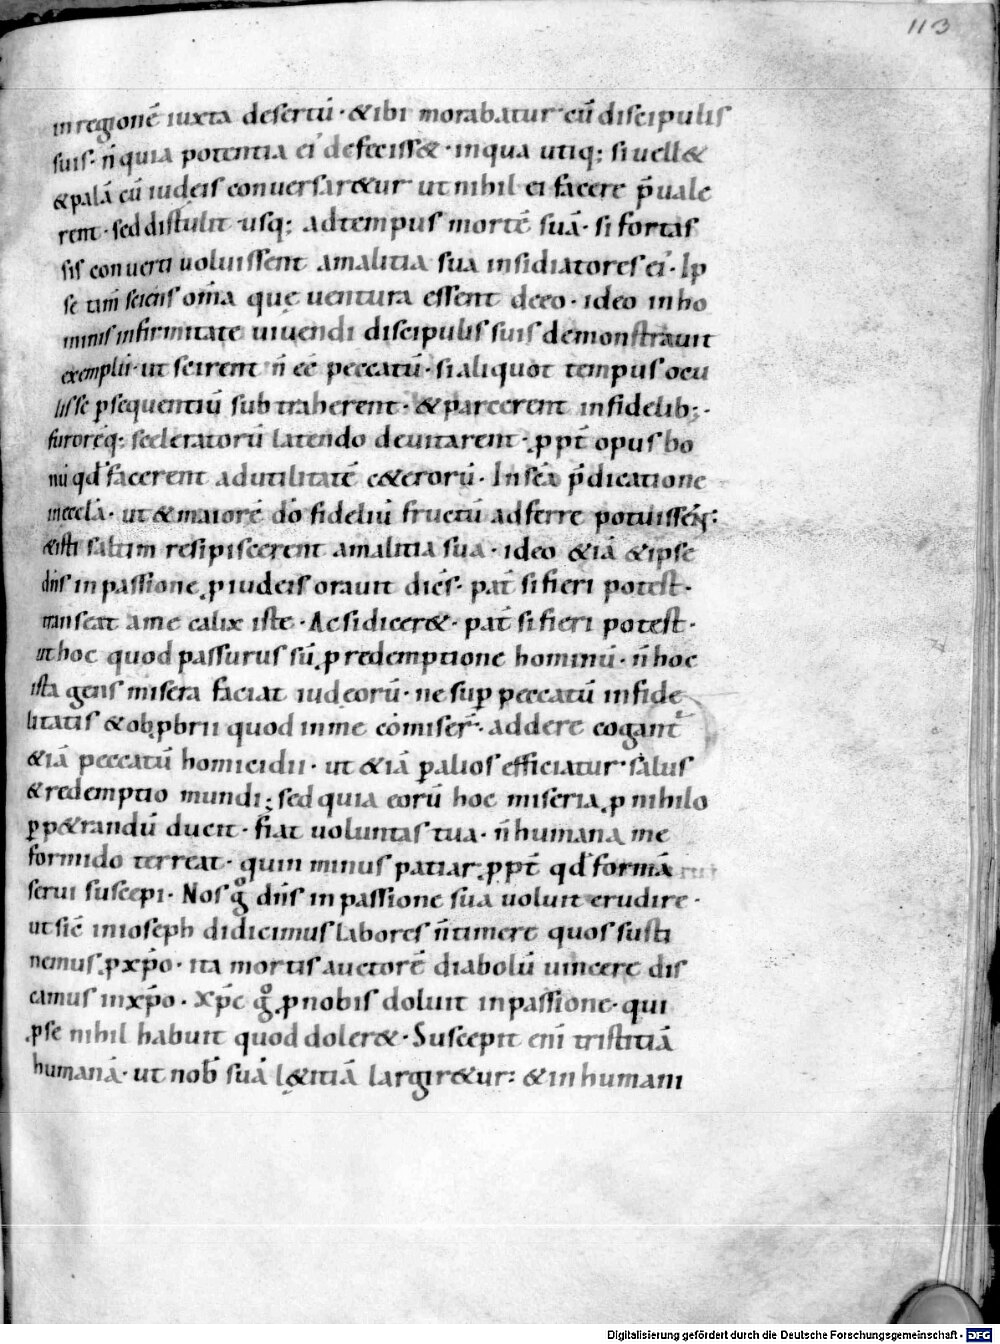 113
in regionē iuxta desertū · & ibi morabatur cū discipulis
suis · n̄ quia potentia ei' defeciss& · in qua utiq; si uell&
& palā cū iudęis conuersar&ur ut nihil ei facere p̄uale
rent · sed distulit usq; ad tempus mortē suā · si fortas
sis conuerti uoluissent a malitia sua insidiatores ei' · Ip
se tam̄ sciens om̄a que uentura essent deeo · ideo in ho
minis infirmitate uiuendi discipulis suis demonstrauit
exemplū · ut scirent n̄ eē peccatū · si aliquot tempus ocu
lis se ꝑsequentiū subtraherent · & parcerent infidelib; ·
furorēq; sceleratorū latendo deuitarent · ꝓpt̄ opus bo
nū qđ facerent ad utilitatē c&erorū · In sc̄a p̄dicatione
in eccl̄a · ut & maiorē dō fideliū fructū adferre potuissent:
& isti saltim resipiscerent a malitia sua · ideo &iā & ipse
dn̄s in passione ꝓ iudeis orauit dicēs · pat̄ si fieri potest ·
transeat a me calix iste · Ac si dicer& · pat̄ si fieri potest ·
ut hoc quod passurus sū ꝓ redemptione hominū · n̄ hoc
ista gens misera faciat iudęorū · ne sup̄ peccatū infide
litatis & obꝓbrii quod in me cōmiser̄ · addere cogant̄
&iā peccatū homicidii · ut &iā ꝑ alios efficiatur salus
& redemptio mundi; sed quia eorū hoc miseria ꝓ nihilo
ꝑp&randū ducit · fiat uoluntas tua · n̄ humana me
formido terreat · quin minus patiar ꝓpt̄ qđ formā
serui suscepi · Nos gͦ dn̄s in passione sua uoluit erudire ·
ut sic̄ in ioseph didicimus labores n̄ timere quos susti
nemus ꝓ xp̄o · ita mortis auctorē diabolū uincere dis
camus in xp̄o · Xp̄c gͦ ꝓ nobis doluit in passione · qui
ꝓ se nihil habuit quod doler& · Suscepit eni̅ tristitiā
humanā · ut nob̄ suā l&itiā largir&ur: & in humani
Digitalisierung gefördert durch die Deutsche Forschungsgemeinschaft - DFG